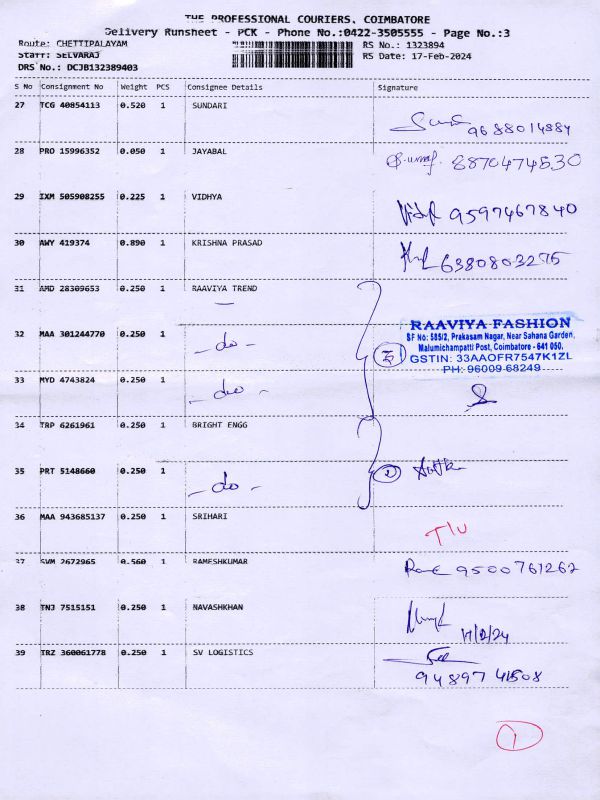 THE PROFESSIONAL COURIERS, COIMBATORE
Delivery Runsheet - PCK - Phone No.:0422-3505555 - Page No.:3
Route: CHETTIPALAYAM
RS No.: 1323894
Staff: SELVARAJ
RS Date: 17-Feb-2024
DRS No.: DCJB132389403
S No Consignment No Weight PCS Consignee Details Signature
27 TCG 40854113 0.520 1 SUNDARI
9688014884
28 PRO 15996352 0.050 1 JAYABAL
8870474530
29 IXM 505908255 0.225 1 VIDHYA
9597467840
30 AWY 419374 0.890 1 KRISHNA PRASAD
6380803275
31 AMD 28309653 0.250 1 RAAVIYA TREND
RAAVIYA FASHION
SF No: 585/2, Prakasam Nagar, Near Sahana Garden,
Malumichampatti Post, Coimbatore - 641 050.
GSTIN: 33AAOFR7547K1ZL
PH: 96009 68249
32 MAA 301244770 0.250 1 - do -
33 MYD 4743824 0.250 1 - do -
34 TRP 6261961 0.250 1 BRIGHT ENGG
35 PRT 5148660 0.250 1 - do -
36 MAA 943685137 0.250 1 SRIHARI
T/U
37 SVM 2672965 0.560 1 RAMESHKUMAR
9500761262
38 TNJ 7515151 0.250 1 NAVASHKHAN
17/2/24
39 TRZ 360061778 0.250 1 SV LOGISTICS
94897 41508
1